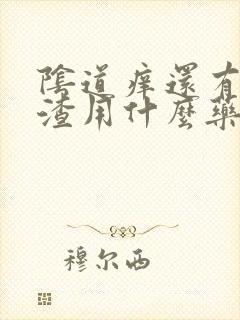 陰道痒還有
渣用什麼藥
穆尔西